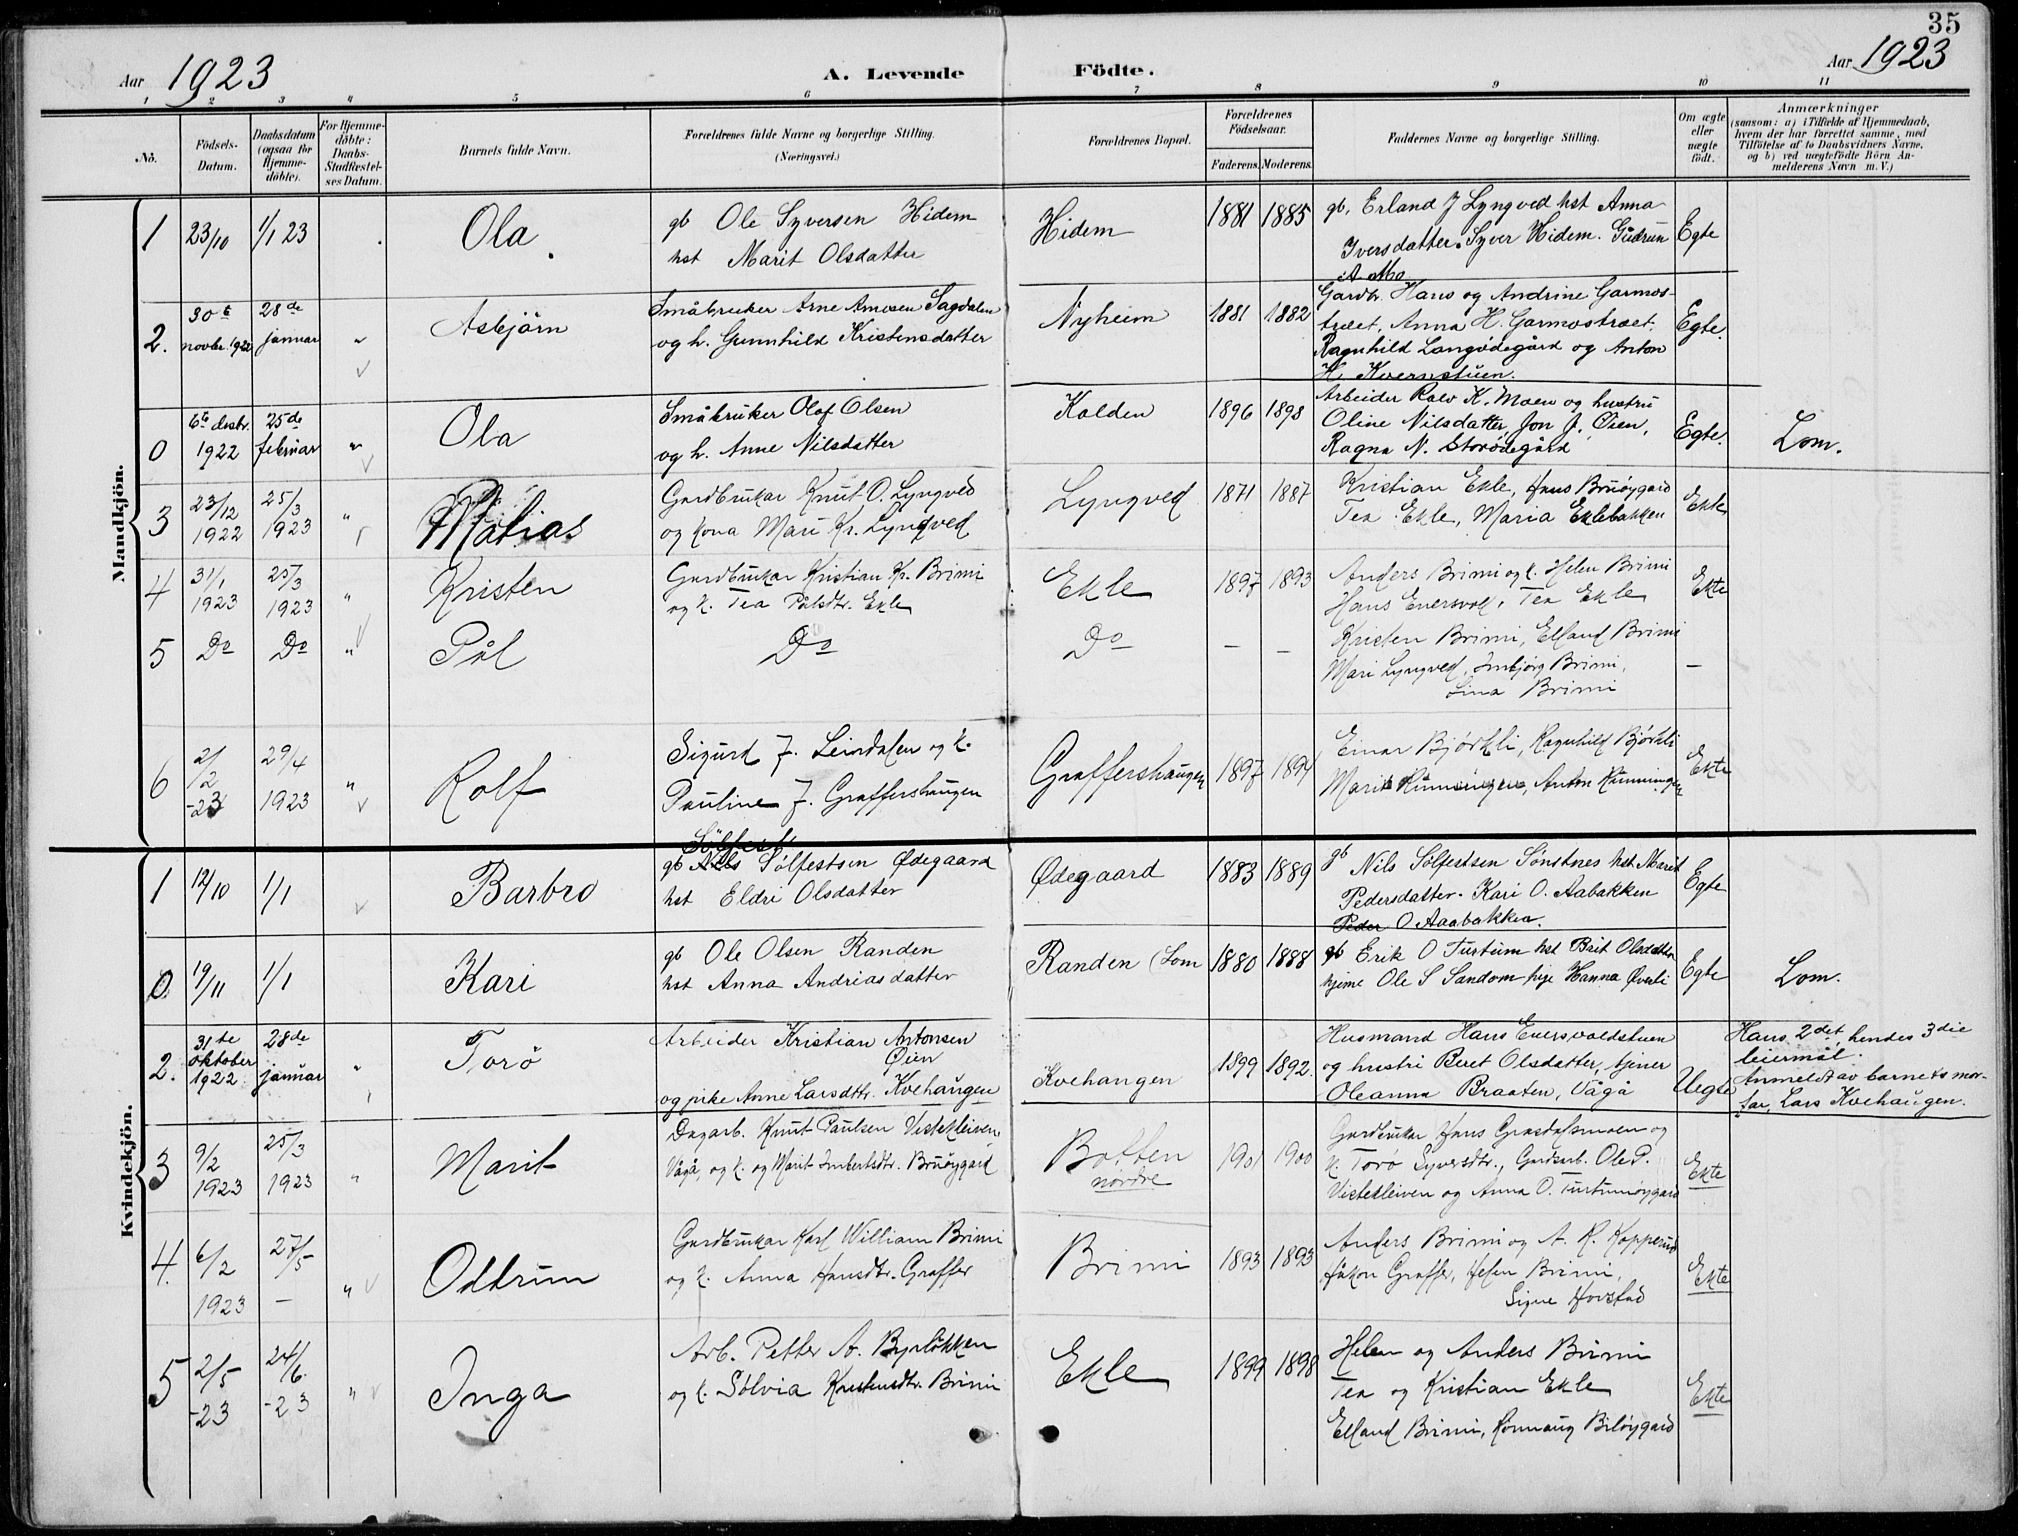 35
Aar 1923
A. Levende Födte.
Aar 1923
1 2 3 4 5 6 7 8 9 10 11
No.
Födsels-Datum.
Daabsdatum (ogsaa for Hjemme-döbte).
For Hjemme-döbte: Daabs-Stadfæstel-ses Datum.
Barnets fulde Navn.
Forældrenes fulde Navne og borgerlige Stilling. (Næringsvei.)
Forældrenes Bopæl.
Forældrenes Födselsaar.
Faderens. Moderens.
Faddernes Navne og borgerlige Stilling.
Om ægte eller uægte födt.
Anmærkninger
(saasom: a) i Tilfælde af Hjemmedaab,
hvem der har forrettet samme, med
Tilföielse af to Daabsvidners Navne,
og b) ved uægtefödte Börn An-
melderens Navn m. V.)
Mandkjön.
1 23/10 1/1 23 Ola
gb Ole Syversen Hidem
hst Marit Olsdatter
Hidem 1881 1885
gb. Erland J Lyngved hst Anna
Iversdatter. Syver Hidem. Gudrun
A Mo
Egte
2. 30te novbr. 1922 28de januar " Asbjörn
Småbruker Arne Amosen Sagdalen
og h. Gunnhild Kristensdatter
Nyheim 1881 1882
Gardbr. Hans og Andrine Garmos-
træet, Anna H. Garmostræet,
Ragnhild Langödegård og Anton
H. Kvernstuen.
Egte.
0 6te desbr. 1922 25de februar " Ola
Småbruker Olaf Olsen
og h. Anne Nilsdatter
Kolden 1896 1898
Arbeider Rolv K. Moen og hustru
Oline Nilsdatter, Jon J. Öien,
Ragna N. Storödegård
Egte. Lom.
3 23/12 1922 25/3 1923 " Matias
Gardbrukar Knut O. Lyngved
og kona Mari Kr. Lyngved
Lyngved 1871 1887
Kristian Ekle, Hans Bruöygard
Tea Ekle, Maria Eklebakken
Ekte
4 31/1 1923 25/3 1923 " Kristen
Gardbrukar Kristian Kr. Brimi
og k. Tea Pålsdtr. Ekle
Ekle 1897 1893
Anders Brimi og k. Helen Brimi
Hans Enersvol, Tea Ekle
Ekte
5 Do Do " Pål
Do Do — —
Kristen Brimi, Elland Brimi
Mari Lyngved, Imbjörg Brimi,
Lina Brimi
—
6 2/2 -23 29/4 1923 " Rolf
Sigurd J. Leirdalen og k.
Pauline J. Graffershaugen
Graffershaugen 1897 1894
Einar Bjørkli, Ragnhild Bjørkli
Marit Runningen, Anton Runningen
Ekte
Kvindekjön.
1 12/10 1/1 Barbro
Sölfest
gb Nils Sølfestsen Ødegaard
hst Eldri Olsdatter
Ødegaard 1883 1889
gb Nils Sølfestsen Sønstnes hst Marit
Pedersdatter. Kari O. Aabakken
Peder O Aaabakken.
Egte
0. 19/11 1/1 Kari
gb Ole Olsen Randen
hst Anna Andriasdatter
Randen (Lom 1880 1888
gb Erik O Turtum hst Brit Olsdatter
hjeme Ole S Sandom pige Hanna Øverli
Egte Lom.
2. 31te oktober 1922. 28de januar " Torö
Arbeider Kristian Antonsen
Öien
og pike Anne Larsdtr. Kvehaugen
Kvehaugen 1899 1892.
Husmand Hans Enersvoldstuen
og hustru Beret Olsdatter, tjener
Oleanna Braaten, Vågå
Uegte
Hans 2det, hendes 3die
leiermål.
Anmeldt av barnets mor-
far, Lars Kvehaugen.
3 9/2 1923 25/3 1923 " Marit
Dagarb. Knut Paulsen Vistekleiven,
Vågå, og k. og Marit Imbertsdtr. Bruöygard
Botten nördre 1901 1900
Gardbrukar Hans Grasdalsmoen og
k. Torø Syversdtr., Gardsarb. Ole P.
Vistekleiven og Anna O. Turtumøygard
Ekte
4. 6/2 1923 27/5 — " Oddrun
Gardbrukar Karl William Brimi
og k. Anna Hansdtr. Graffer
Brimi 1893 1893
Anders Brimi og A. R. Kopperud
Håkon Graffer, Helen Brimi,
Signe Hovstad
Ekte
5 2/5 -23 24/6. -23 " Inga
Arb. Petter A. Byrløkken
og k. Sølvia Kristensdtr. Brimi
Ekle 1899 1898
Helen og Anders Brimi
Tea og Kristian Ekle
Elland Brimi, Rønnaug Biløygard
Ekte